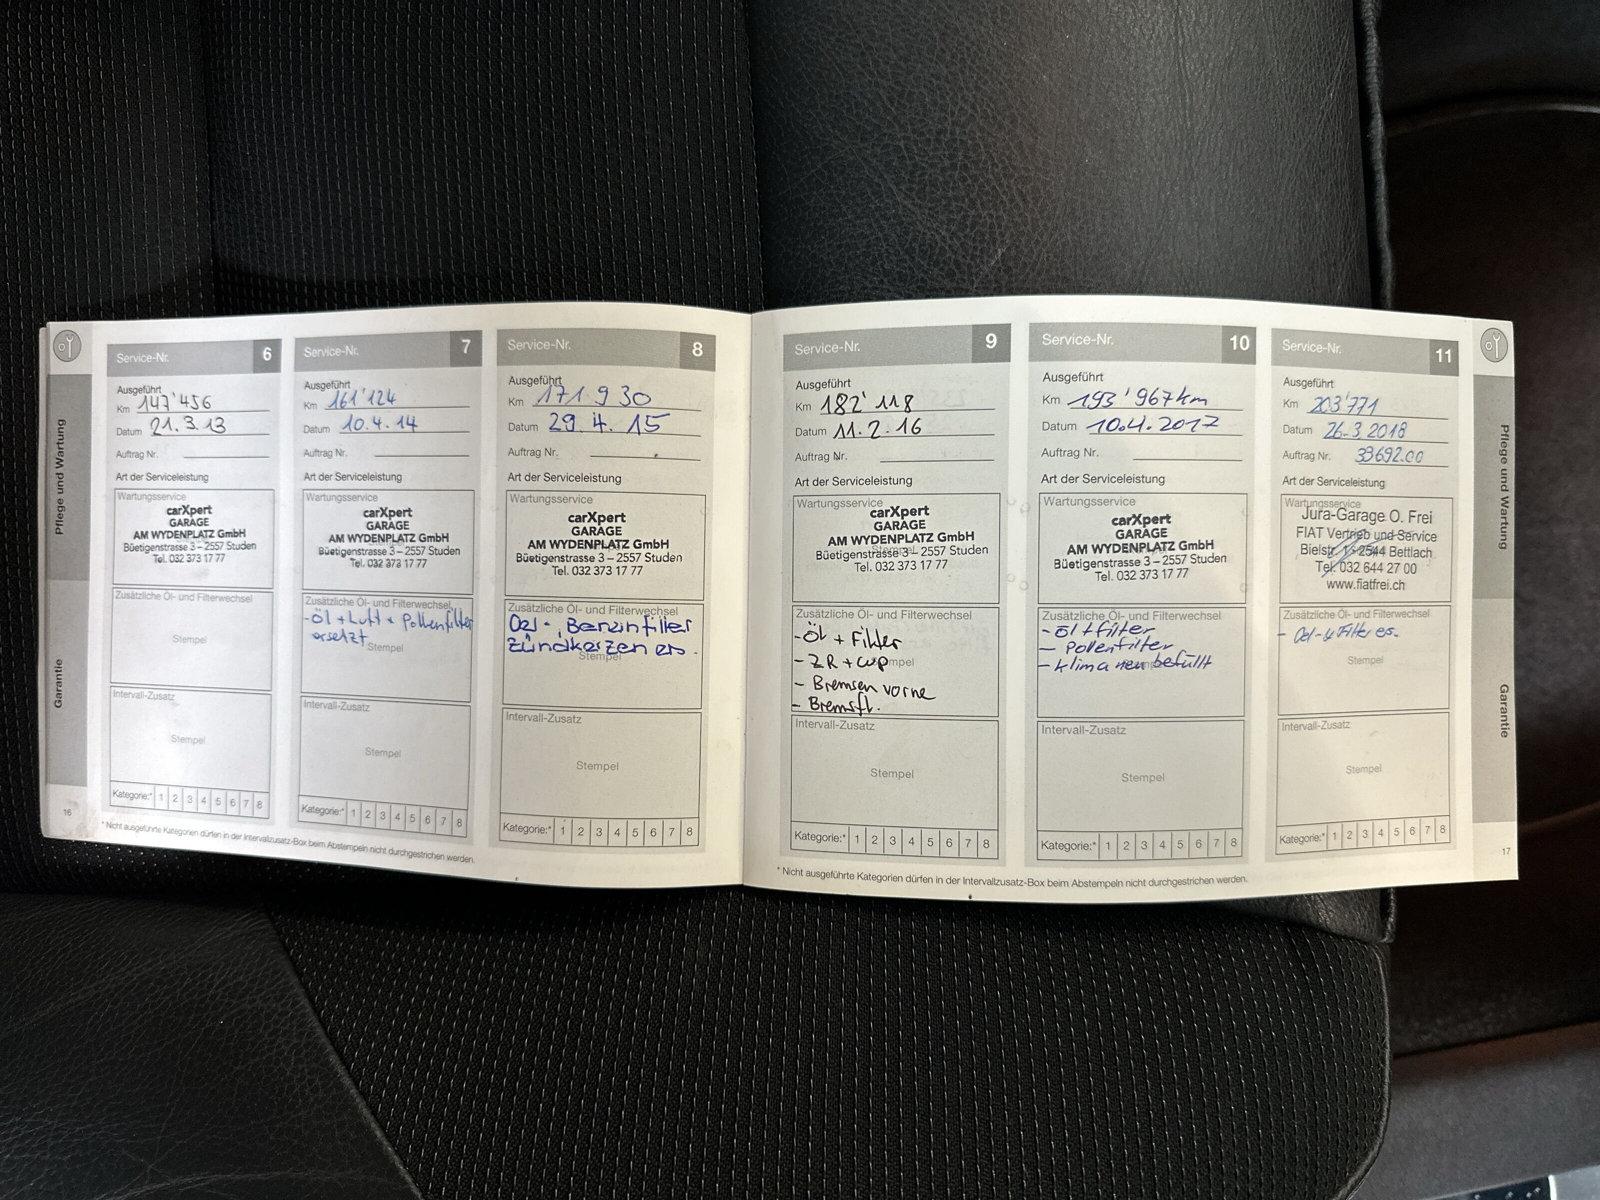 Pflege und Wartung
Garantie
16
Service-Nr. 6
Ausgeführt
Km 147'456
Datum 21.3.13
Auftrag Nr.
Art der Serviceleistung
Wartungsservice
carXpert
GARAGE
AM WYDENPLATZ GmbH
Büetigenstrasse 3 – 2557 Studen
Tel. 032 373 17 77
Zusätzliche Öl- und Filterwechsel
Stempel
Intervall-Zusatz
Stempel
Kategorie:* 1 2 3 4 5 6 7 8
Service-Nr. 7
Ausgeführt
Km 161'124
Datum 10.4.14
Auftrag Nr.
Art der Serviceleistung
Wartungsservice
carXpert
GARAGE
AM WYDENPLATZ GmbH
Büetigenstrasse 3 – 2557 Studen
Tel. 032 373 17 77
Zusätzliche Öl- und Filterwechsel
-Öl + Luft + Pollenfilter
ersetzt
Stempel
Intervall-Zusatz
Stempel
Kategorie:* 1 2 3 4 5 6 7 8
Service-Nr. 8
Ausgeführt
Km 171930
Datum 29.4.15
Auftrag Nr.
Art der Serviceleistung
Wartungsservice
carXpert
GARAGE
AM WYDENPLATZ GmbH
Büetigenstrasse 3 – 2557 Studen
Tel. 032 373 17 77
Zusätzliche Öl- und Filterwechsel
Oel-, Benzinfilter
Zündkerzen ers.
Stempel
Intervall-Zusatz
Stempel
Kategorie:* 1 2 3 4 5 6 7 8
* Nicht ausgeführte Kategorien dürfen in der Intervallzusatz-Box beim Abstempeln nicht durchgestrichen werden.
Service-Nr. 9
Ausgeführt
Km 182'118
Datum 11.2.16
Auftrag Nr.
Art der Serviceleistung
Wartungsservice
carXpert
GARAGE
AM WYDENPLATZ GmbH
Büetigenstrasse 3 – 2557 Studen
Tel. 032 373 17 77
Zusätzliche Öl- und Filterwechsel
- Öl + Filter
- ZR + wp
- Bremsen vorne
- Bremsfl.
Intervall-Zusatz
Stempel
Kategorie:* 1 2 3 4 5 6 7 8
Service-Nr. 10
Ausgeführt
Km 193'967km
Datum 10.4.2017
Auftrag Nr.
Art der Serviceleistung
Wartungsservice
carXpert
GARAGE
AM WYDENPLATZ GmbH
Büetigenstrasse 3 – 2557 Studen
Tel. 032 373 17 77
Zusätzliche Öl- und Filterwechsel
- Öl + filter
- Pollenfilter
- Klima neu befüllt
Intervall-Zusatz
Stempel
Kategorie:* 1 2 3 4 5 6 7 8
Service-Nr. 11
Ausgeführt
Km 203'771
Datum 26.3.2018
Auftrag Nr. 33692.00
Art der Serviceleistung
Wartungsservice
Jura-Garage O. Frei
FIAT Vertrieb und Service
Bielstr. 13 2544 Bettlach
Tel. 032 644 27 00
www.fiatfrei.ch
Zusätzliche Öl- und Filterwechsel
- Oel- u Filter es.
Stempel
Intervall-Zusatz
Stempel
Kategorie:* 1 2 3 4 5 6 7 8
* Nicht ausgeführte Kategorien dürfen in der Intervallzusatz-Box beim Abstempeln nicht durchgestrichen werden.
Pflege und Wartung
Garantie
17